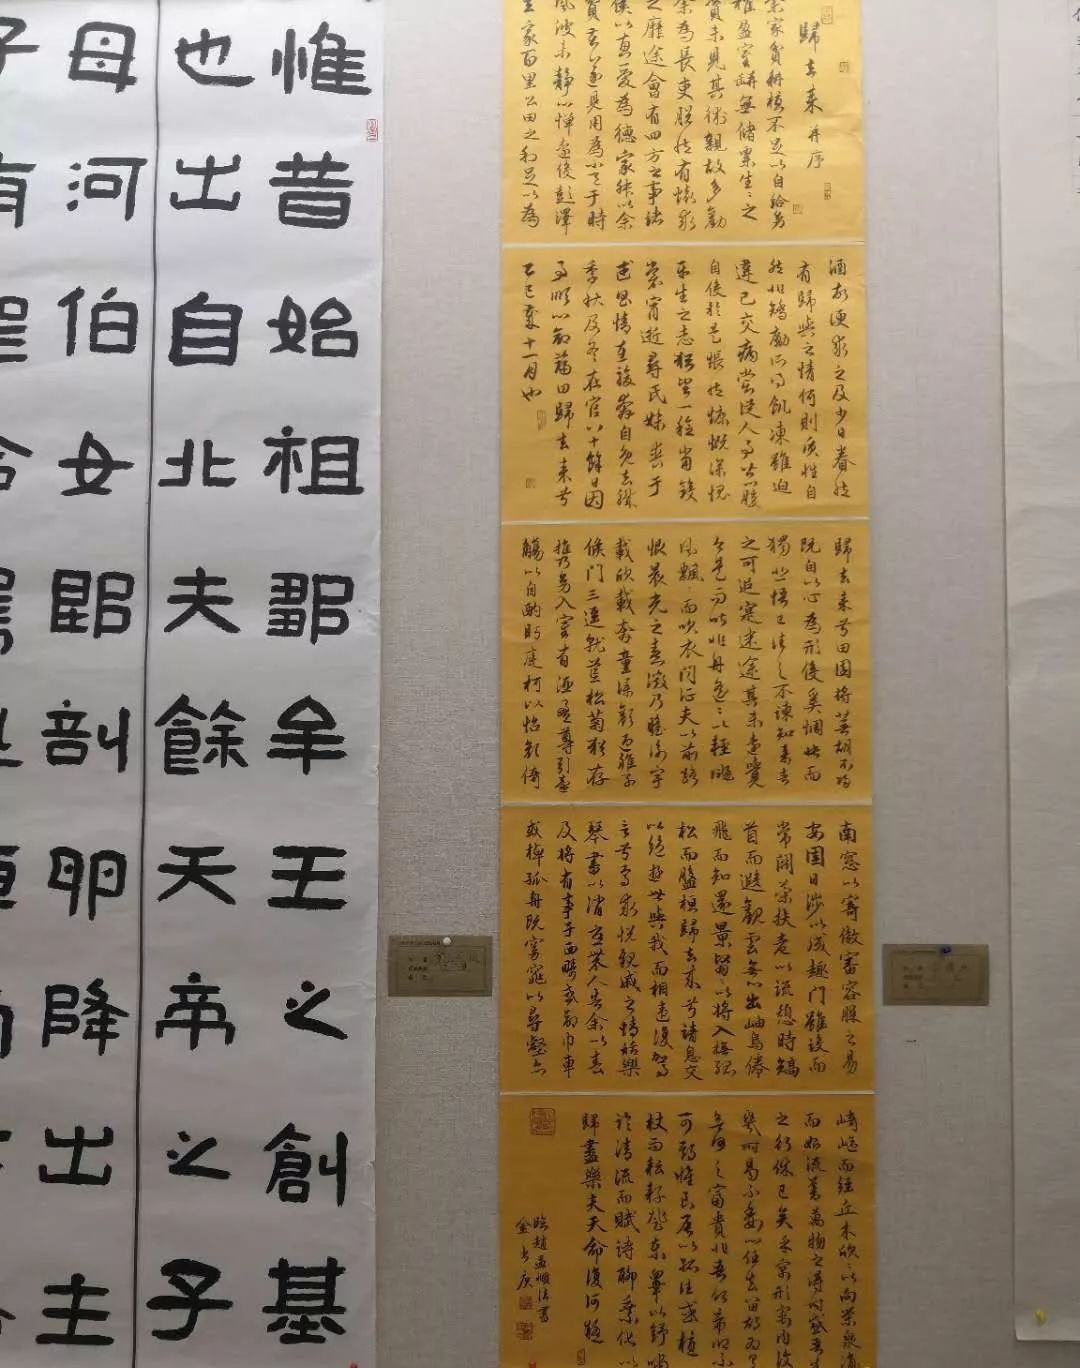 惟昔始祖鄒牟王之創基
也出自北夫餘天帝之子
母河伯女郎剖卵降出主
歸去来并序
家貧耕植不足以自給幼
稚盈室缾無儲粟生生之
資未見其術親故多勸
余為長吏脫然有懷求
之靡途會有四方之事諸
侯以惠愛為德家叔以余
貧苦遂見用為小邑于時
風波未靜心憚遠役彭澤
去家百里公田之利足以為
酒故便求之及少日眷然
有歸與之情何則質性自
然非矯勵所得飢凍雖迫
違己交病嘗從人事皆口腹
自役於是悵然慷慨深愧
平生之志猶望一稔當斂
裳宵逝尋氏妹喪于
武昌情在駿奔自免去職
季秋及冬在官八十餘日因
事順心命篇曰歸去来兮
乙巳歲十一月也
歸去来兮田園將蕪胡不歸
既自以心為形役奚惆悵而
獨悲悟已往之不諫知来者
之可追寔迷途其未遠覺
今是而昨非舟遙遙以輕颺
風飄飄而吹衣問征夫以前路
恨晨光之熹微乃瞻衡宇
載欣載奔童僕歡迎稚子
候門三逕就荒松菊猶存
攜幼入室有酒盈尊引壺
觴以自酌眄庭柯以怡顏倚
南窓以寄傲審容膝之易
安園日涉以成趣門雖設而
常關策扶老以流憩時矯
首而遐觀雲無心出岫鳥倦
飛而知還景翳翳以將入撫孤
松而盤桓歸去来兮請息交
以絕遊世與我而相違復駕
言兮焉求悅親戚之情話樂
琴書以消憂農人告余以春
及將有事于西疇或命巾車
或棹孤舟既窈窕以尋壑亦
崎嶇而經丘木欣欣以向榮泉涓
而始流善萬物之得時感吾生
之行休已矣乎寓形宇内復
幾時曷不委心任去留胡為
之富貴非吾願帝鄉不
可期懷良辰以孤往或植
杖而耘耔登東皋以舒嘯
臨清流而賦詩聊乘化以
歸盡樂夫天命復何疑
臨趙孟頫法書